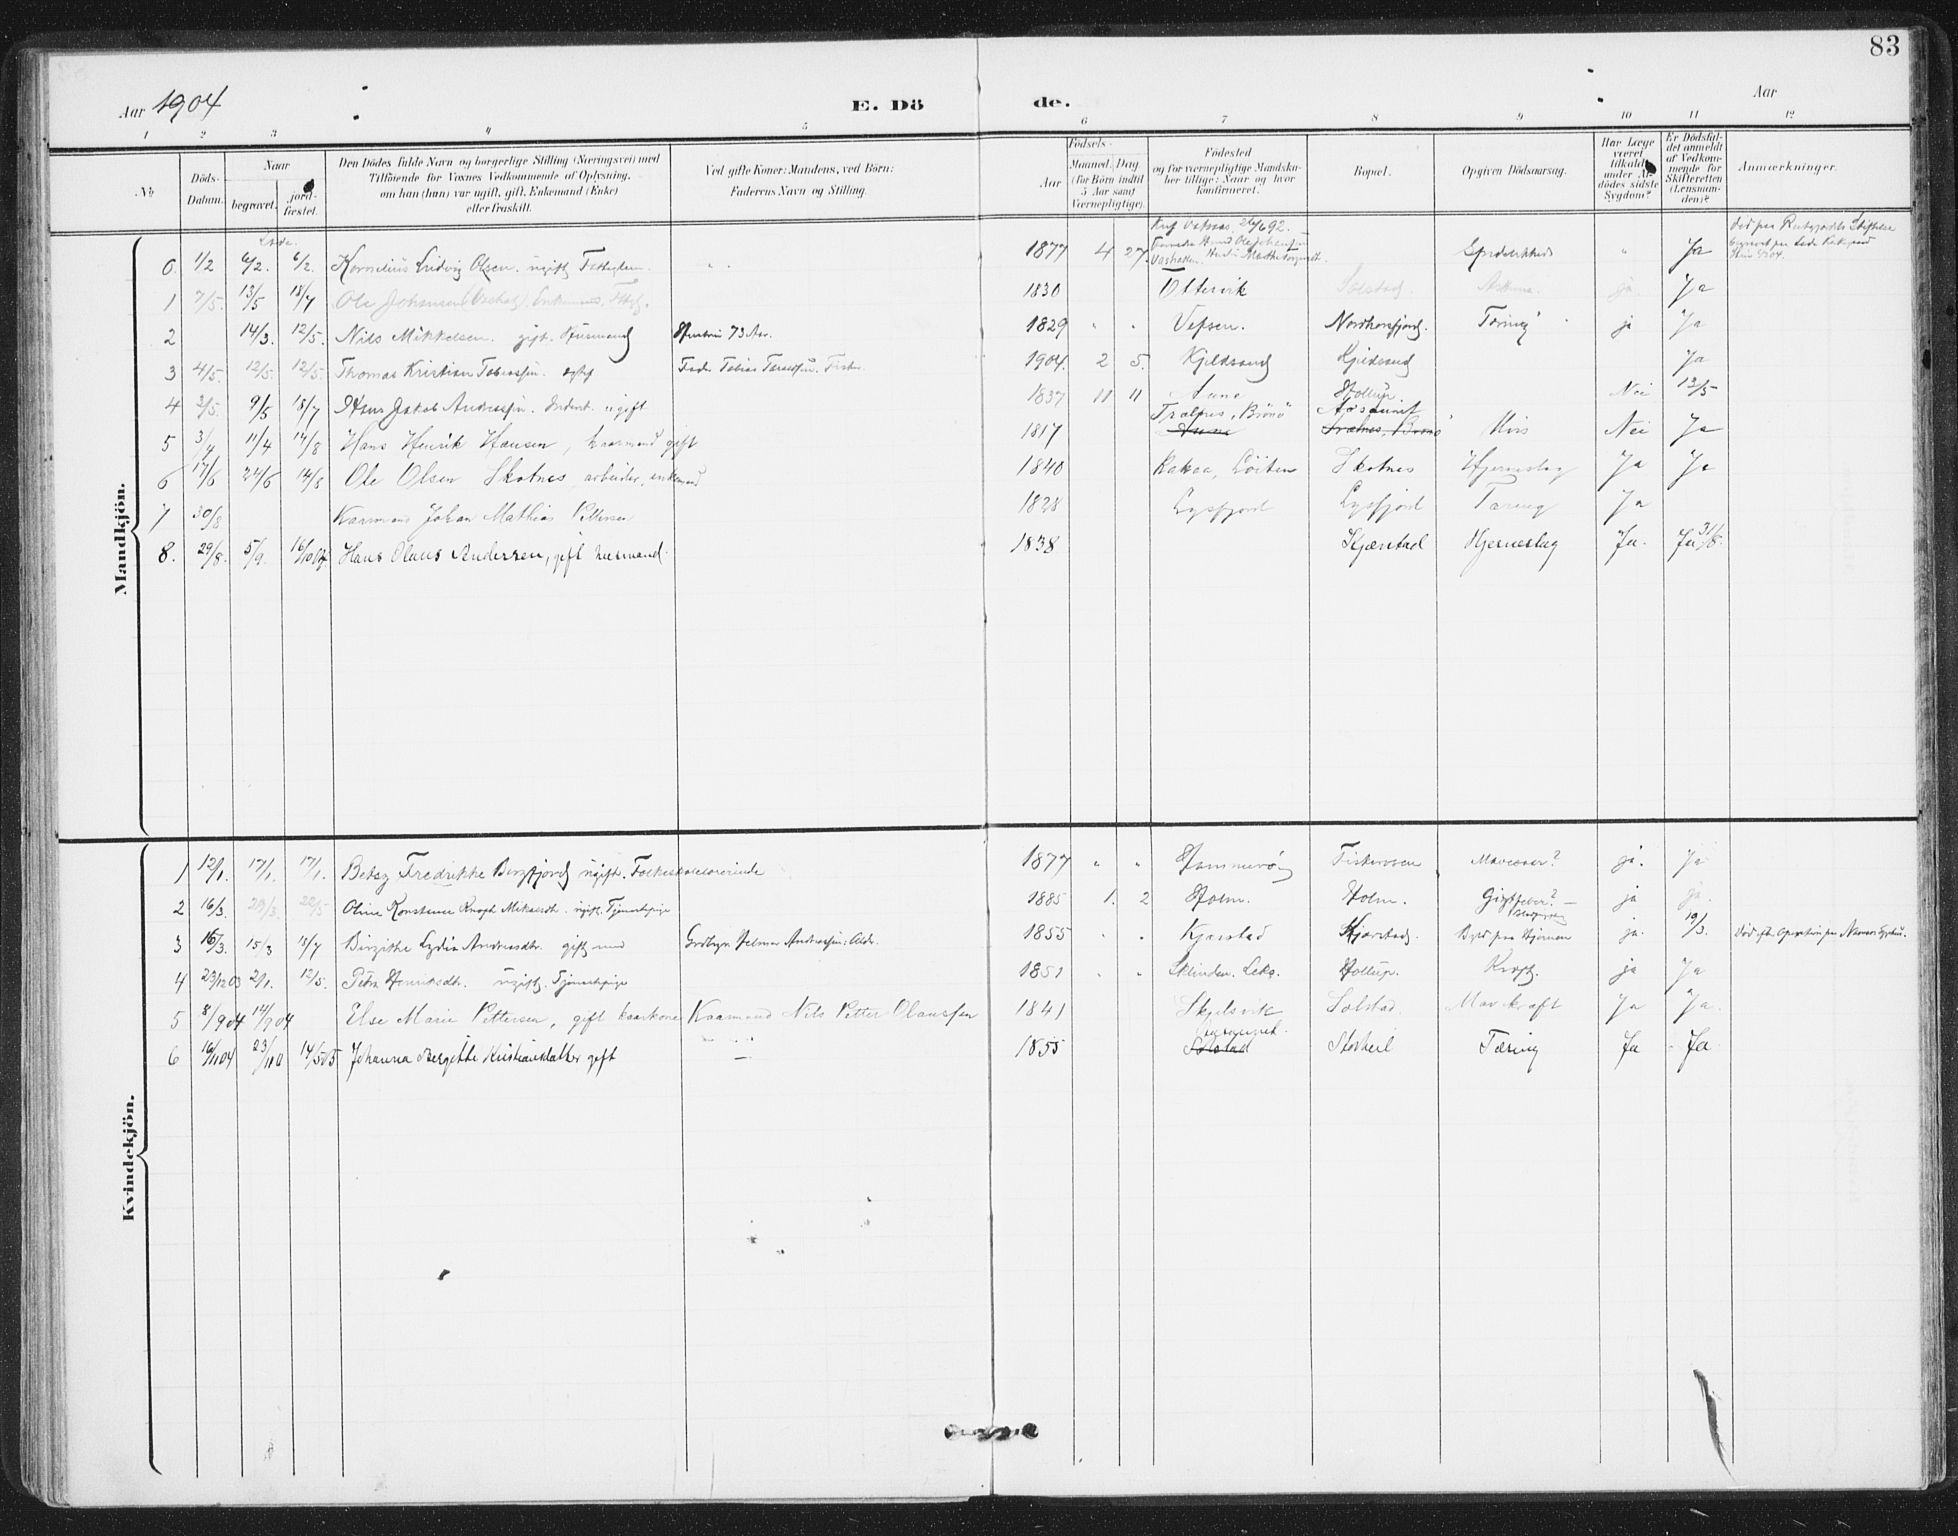 83
Aar 1904
E. Dö de.
Aar
1 2 3 4 5 6 7 8 9 10 11 12
No
Döds-Datum.
Naar
begravet.
jord-fæstet.
Den Dödes fulde Navn og borgerlige Stilling (Næringsvei) med
Tilföiende for Voxnes Vedkommende af Oplysning,
om han (hun) var ugift, gift, Enkemand (Enke)
eller fraskilt.
Ved gifte Koner: Mandens, ved Börn:
Faderens Navn og Stilling.
Födsels-
Aar
Maaned. Dag
(for Börn indtil
5 Aar samt
Værnepligtige).
Födested
og for værnepligtige Mandska-
ber tillige: Naar og hvor
konfirmeret.
Bopæl.
Opgiven Dödsaarsag.
Har Læge
været
tilkaldt
under Af-
dödes sidste
Sygdom?
Er Dödsfal-
det anmeldt
af Vedkom-
mende for
Skifteretten
(Lensman-
den)?
Anmærkninger.
Mandkjön.
0. 1/2 6/2. 6/2. Kornelius Ludvig Olsen. ugift 1877 4 27 Spedalskhed " Ja
1 7/5. 13/5 18/7 Ole Johansen 1830 Otervik Solstad. ja Ja
2 14/3. 12/5. Nils Mikkelsen. gift. Husmand Hustru 73 Aar. 1829 " " Vefsen. Nordhorsfjord. Tæring ja Ja
3 4/5. 12/5. 12/5. Thomas Kristian Tobiassen. ægte Fader Tobias 1904. 2 5. Kjeldsand Kjeldsand Ja
4 3/5. 9/5 18/7 Hans Jakob Andreassen. Inderst. ugift 1837 11 11 Aune Hollup. Nei 13/5
5 3/4 11/4 14/8 Hans Henrik Hansen, kaarmand gift 1817 Trælnes, Brönö Aune Aarsandet Trælnes, Brönö Nei Ja
6 17/6 24/6 14/8 Ole Olsen Skotnes, arbeider, enkemand 1840 Löiten Skotnes Hjerneslag Ja Ja
7 30/8 Kaarmand Johan Mathias Pettersen 1828 Lysfjord Lysfjord Tæring Ja
8. 29/8. 5/9. Hans Olaus Andersen, gift husmand 1838 Kjærstad Hjerneslag Ja. Ja 31/8.
Kvindekjön.
1 12/1. 17/1. 17/1. Betsy Fredrikke Bergfjord ugift. Folkeskolelærerinde 1877 " " Hammerö Fiskerosen Mavesaar? ja. Ja
2 16/3. 29/3. 22/5 Oline Konstanse Mikalsdtr. ugift. Tjenestepige 1885 1. 2 Holm. Holm. Gigtfeber? ja ja.
3 16/3. 15/3 18/7 Birgithe Lydia Andreasdtr. gift med Grdbrgr. Helmer Andreassen: 1855 " " Kjærstad Kjærstad. Byld paa Hjernen ja. 19/3.
4 23/12 03 2/1. 12/5. Petra Henriksdtr. ugift. Tjenestepige 1851 " " Sklinden. Leka. Hollup. Kræft. ja Ja
5 8/9 04 14/9 04 Else Marie Pettersen, gift kaarkone Kaarmand Nils Petter Olaussen 1841 Skjelsvik Solstad. Mavekræft Ja Ja.
6 16/11 04 23/11 0 14/5 05 Johanna Bergitte Kristiansdatter gift — 1855 Solstad Storheil Tæring Ja Ja